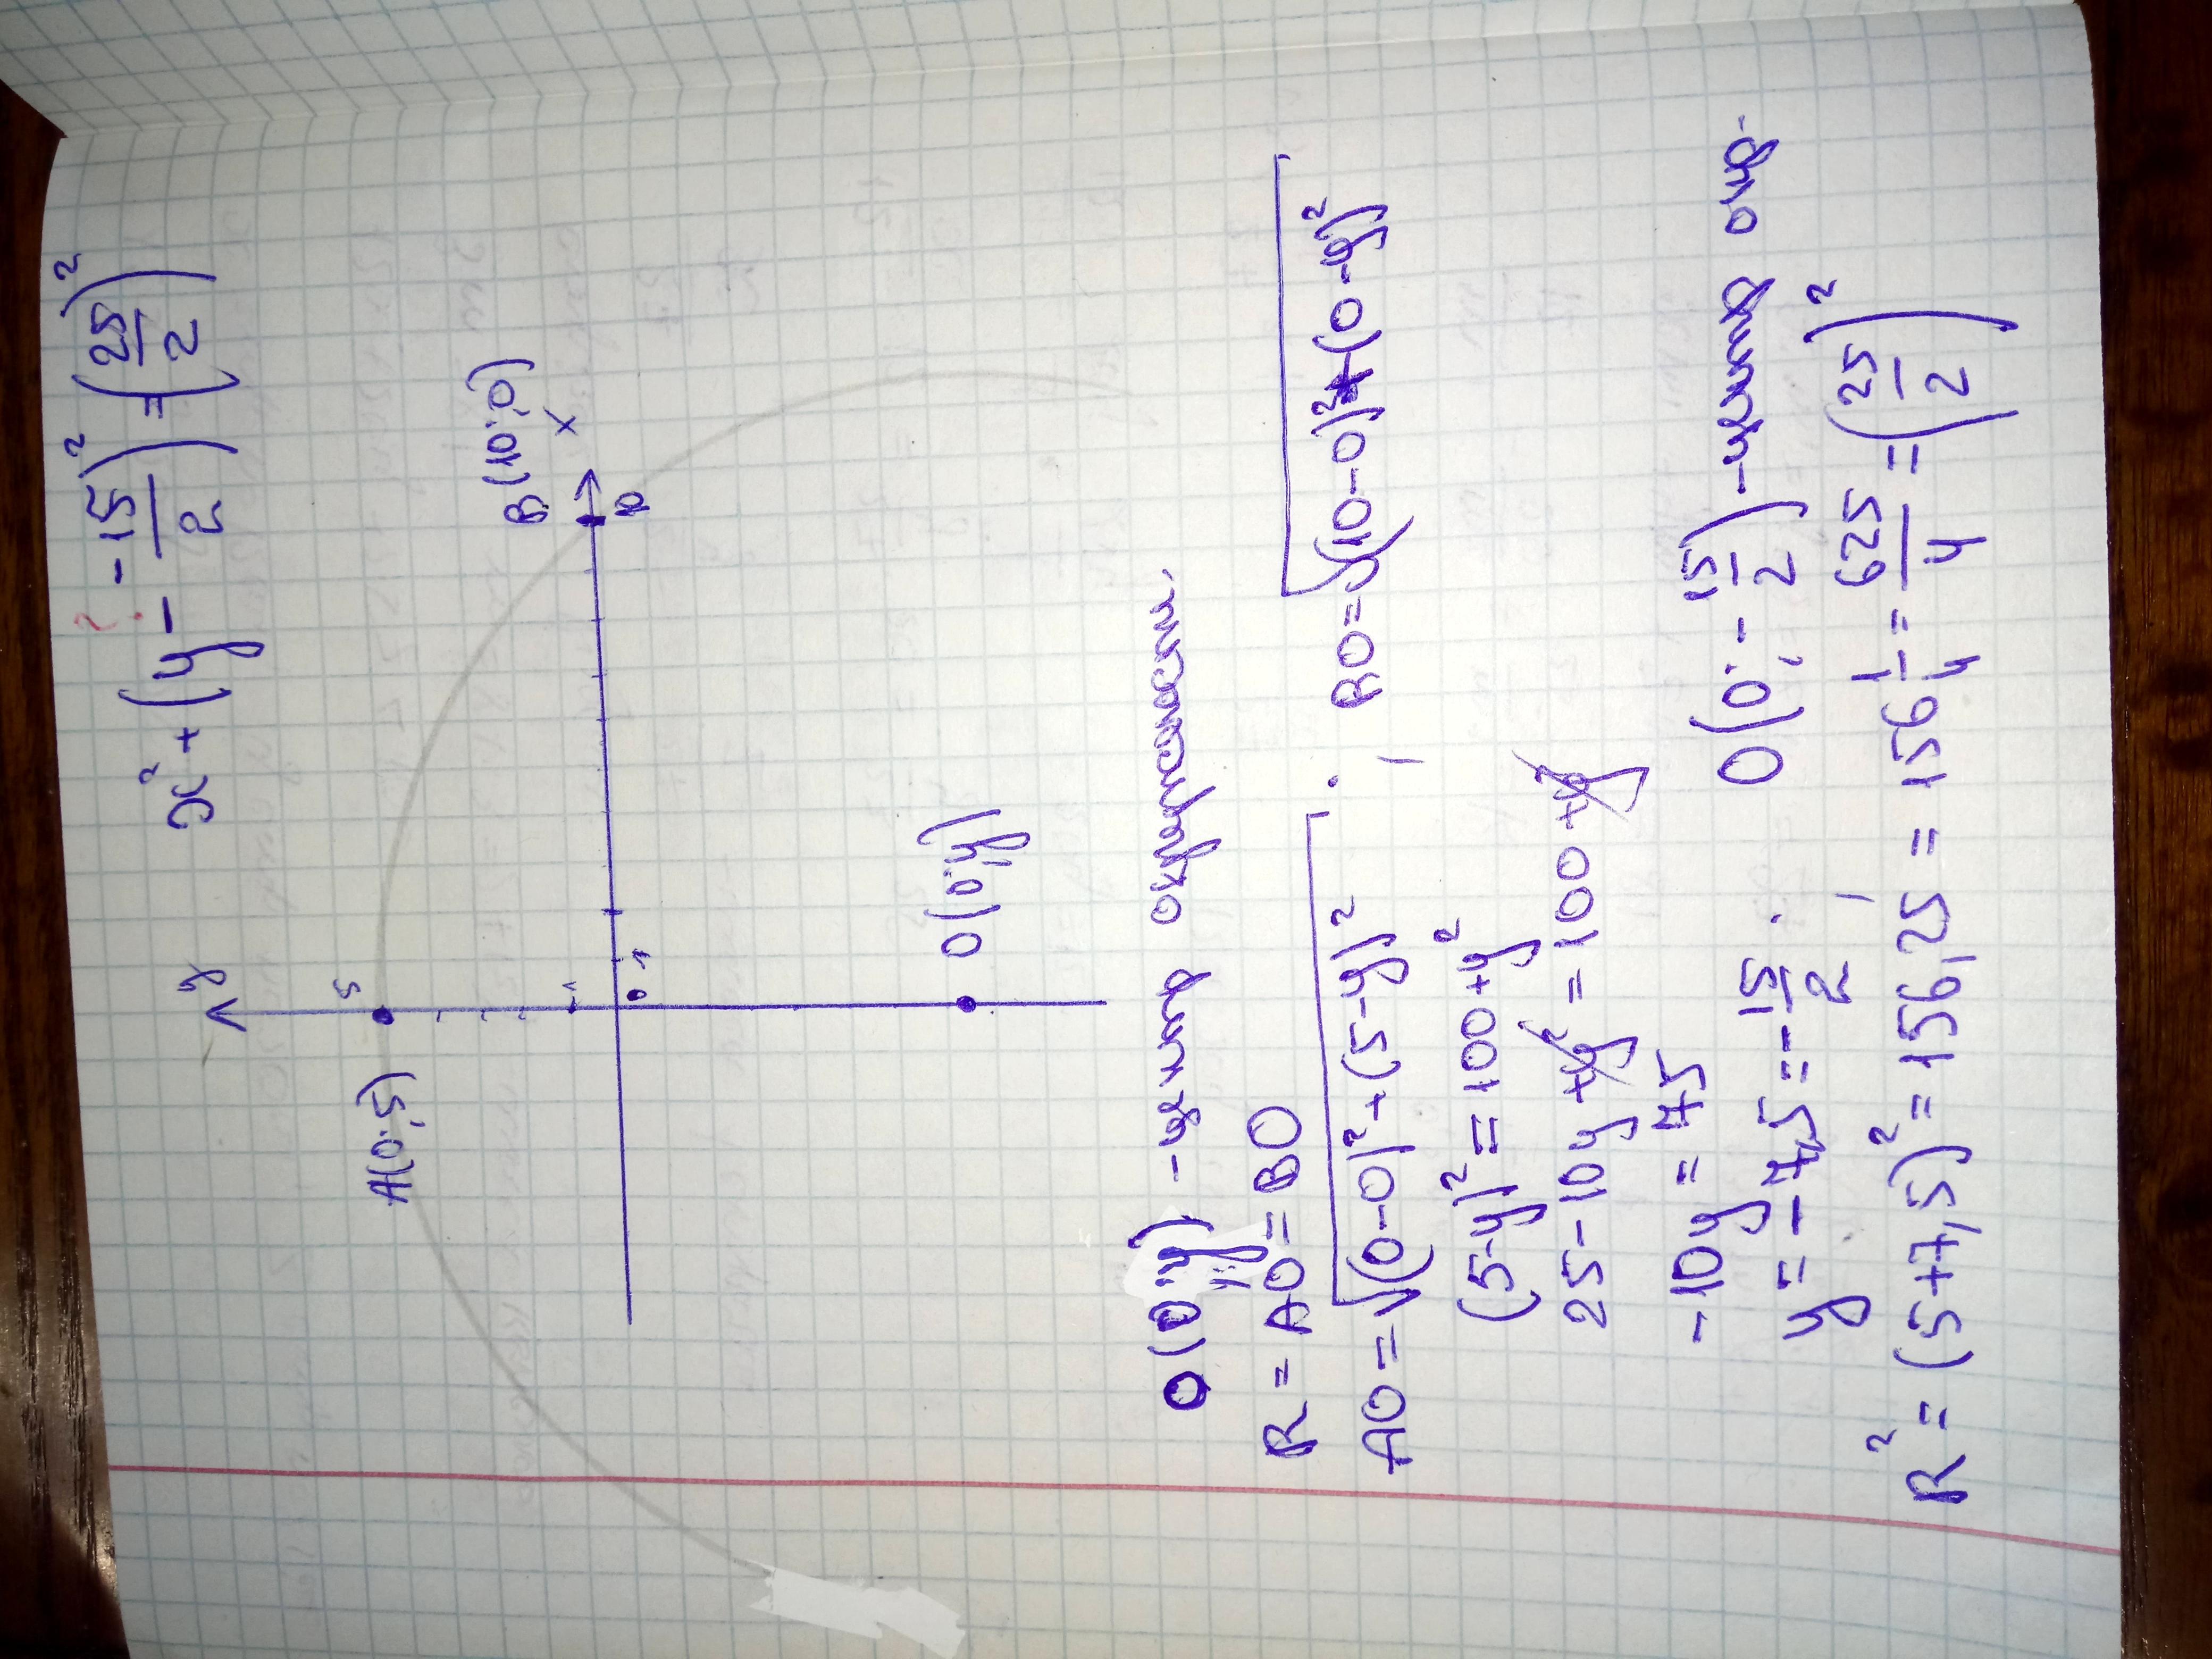 x² + (y - -15/2)² = (25/2)²
?
y
5
A(0;5)
1
0 1
B(10;0)
x
10
O(0;y)
O(0;y) - центр окружности.
R = AO = BO
AO = √(0-0)² + (5-y)² ; BO = √(10-0)² + (0-y)²
(5-y)² = 100 + y²
25 - 10y + y² = 100 + y²
-10y = 75
y = -7,5 = -15/2 ; O(0; -15/2) - центр окр.
R² = (5+7,5)² = 156,25 = 156 1/4 = 625/4 = (25/2)²